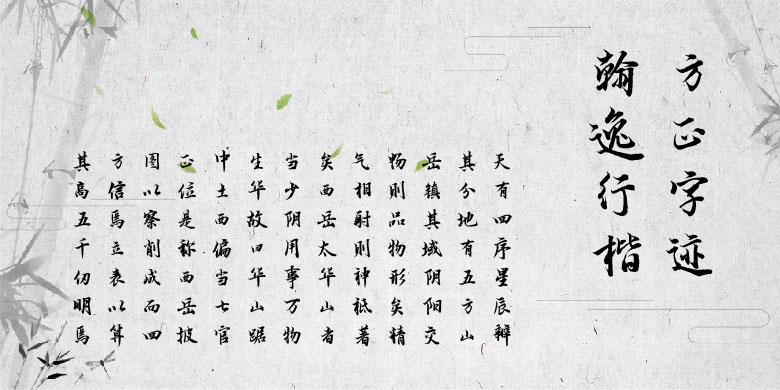 方正字迹
翰逸行楷
天有四序星辰辨
其分地有五方山
岳镇其域阴阳交
畅则品物形矣精
气相射则神祗著
矣西岳太华山者
当少阴用事万物
生华故曰华山踞
中土西偏当七官
正位是称西岳披
图以察削成而四
方信焉立表以算
其高五千仞明焉